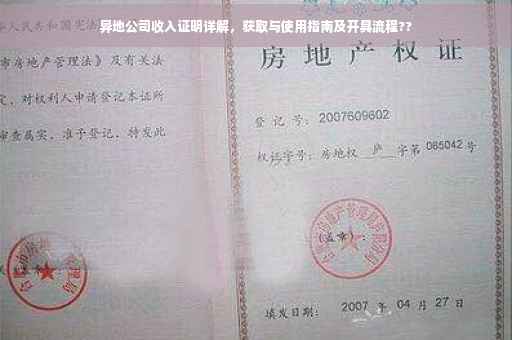 异地公司收入证明详解，获取与使用指南及开具流程??
人民共和国宪法
市房地产管理法》及有关法
定，对权利人申请登记本证所
审查属实，准予登记，特发此
房地产权证
登记号：2007609602
权证字号：房地权 庐 字第 065042 号
（盖章）：
填发日期： 2007 年 04 月 27 日